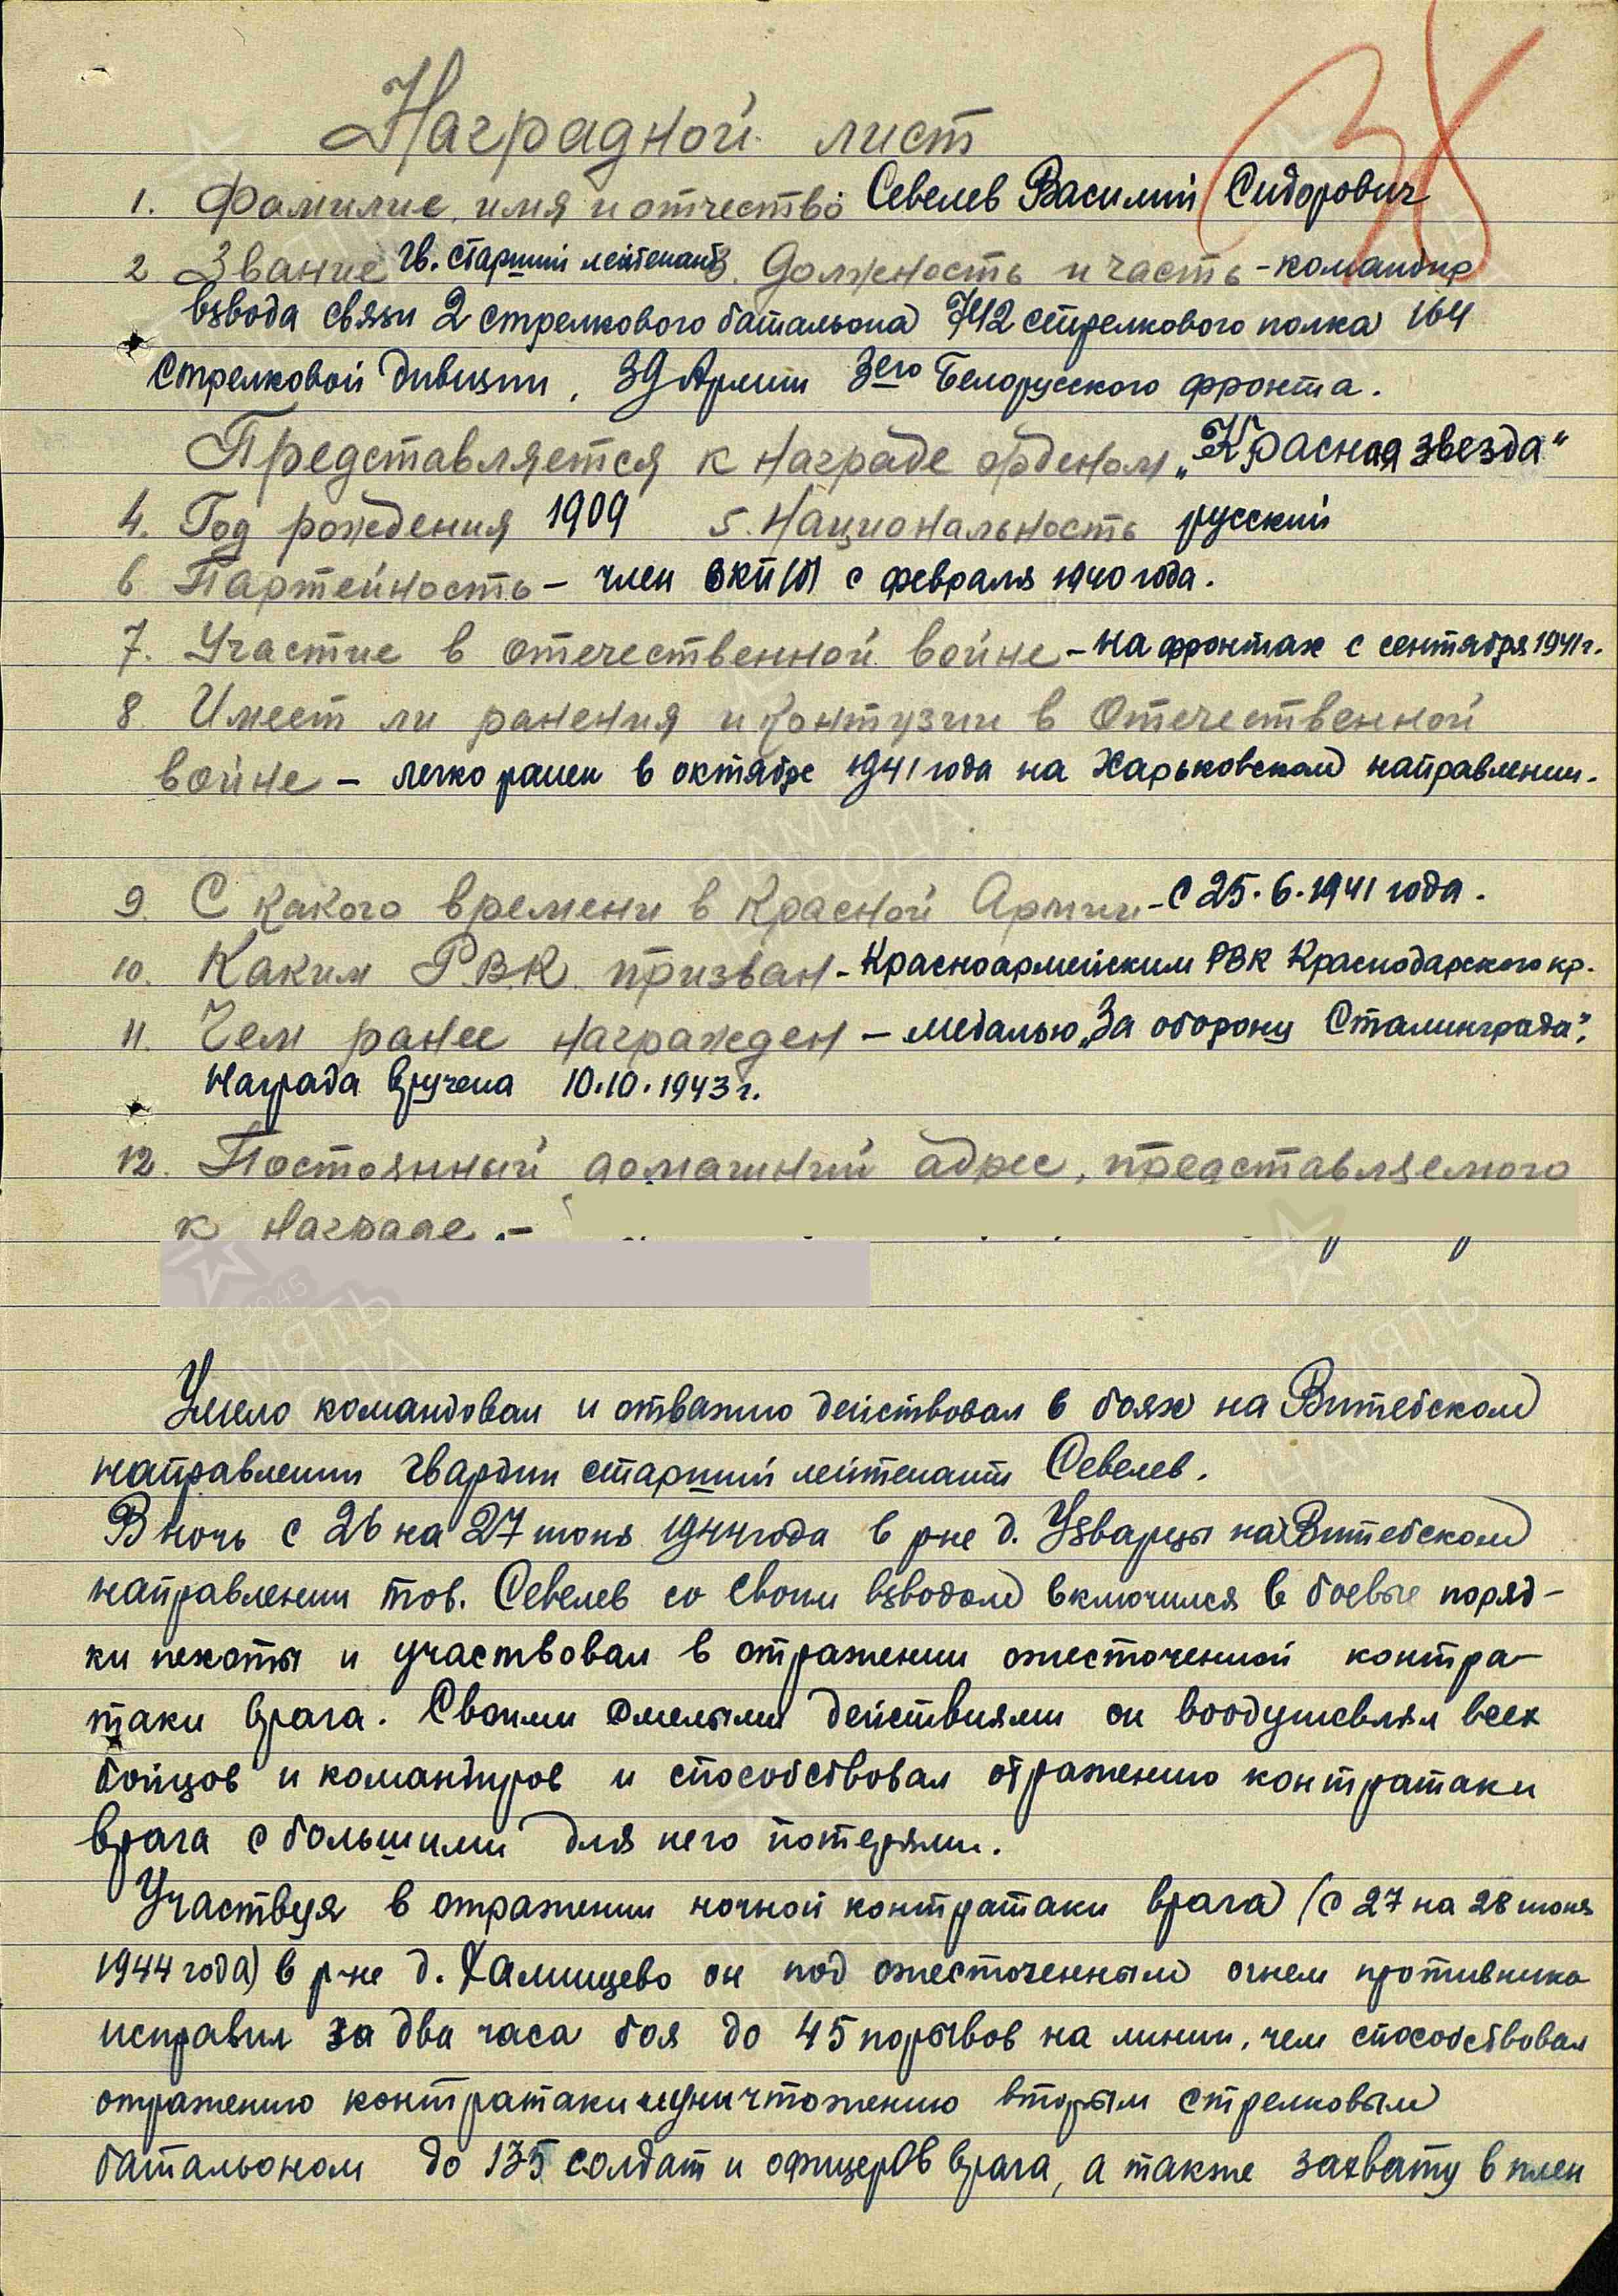 38
Наградной лист
1. Фамилие, имя и отчество Севелев Василий Сидорович
2 Звание гв. старший лейтенант 3. Должность и часть - командир
взвода связи 2 стрелкового батальона 742 стрелкового полка 164
стрелковой дивизии, 39 Армии 3его Белорусского фронта.
Представляется к награде орденом „Красная звезда"
4. Год рождения 1909 5. Национальность русский
6 Партейность - член ВКП(б) с февраля 1940 года.
7. Участие в отечественной войне - на фронтах с сентября 1941 г.
8 Имеет ли ранения и контузии в Отечественной
войне - легко ранен в октябре 1941 года на Харьковском направлении.
9. С какого времени в Красной Армии - с 25.6.1941 года.
10. Каким Р.В.К. призван - Красноармейским РВК Краснодарского кр.
11. Чем ранее награжден - медалью „За оборону Сталинграда".
Награда вручена 10.10.1943 г.
12. Постоянный домашний адрес, представляемого
к награде. -
Умело командовал и отважно действовал в боях на Витебском
направлении гвардии старший лейтенант Севелев.
В ночь с 26 на 27 июня 1944 года в р-не д. Узварцы на Витебском
направлении тов. Севелев со своим взводом включился в боевые поряд-
ки пехоты и участвовал в отражении ожесточенной контра-
таки врага. Своими смелыми действиями он воодушевлял всех
бойцов и командиров и способствовал отражению контратаки
врага с большими для него потерями.
Участвуя в отражении ночной контратаки врага (с 27 на 28 июня
1944 года) в р-не д. Хамищево он под ожесточенным огнем противника
исправил за два часа боя до 45 порывов на линии, чем способствовал
отражению контратаки и уничтожению вторым стрелковым
батальоном до 135 солдат и офицеров врага, а также захвату в плен